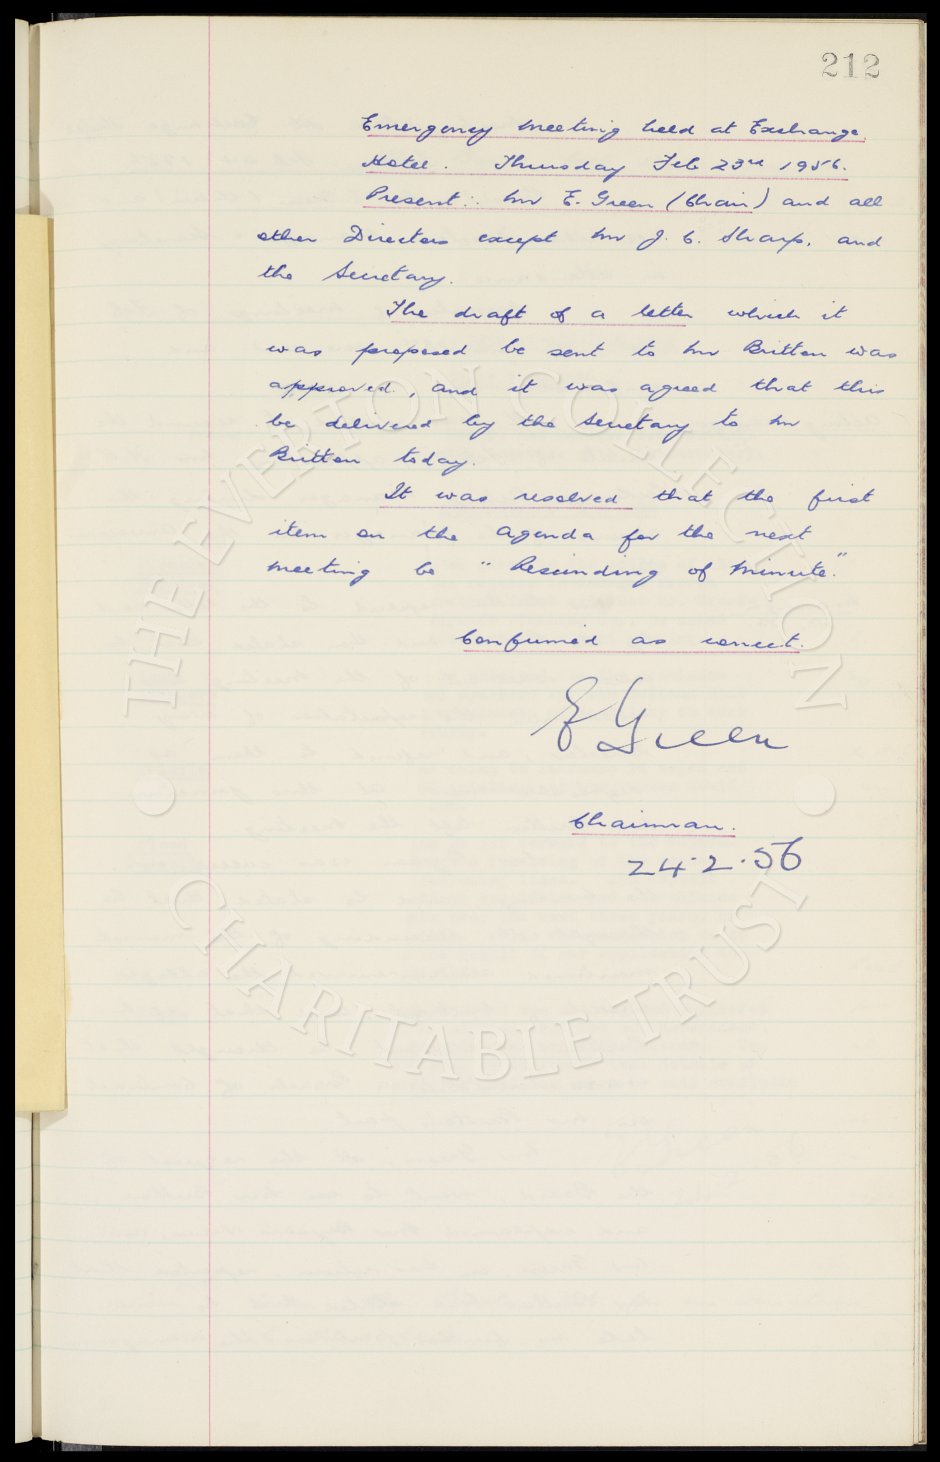 212
Emergency meeting held at Exchange
Hotel. Thursday Feb 23rd 1956.
Present: Mr E. Green (Chair) and all
other Directors except Mr J. C. Sharp, and
the Secretary.
The draft of a letter which it
was proposed be sent to Mr Britton was
approved, and it was agreed that this
be delivered by the Secretary to Mr
Britton today.
It was resolved that the first
item on the agenda for the next
meeting be "Rescinding of Minute."
Confirmed as correct.
E Green
Chairman.
24.2.56
THE EVERTON COLLECTION
CHARITABLE TRUST